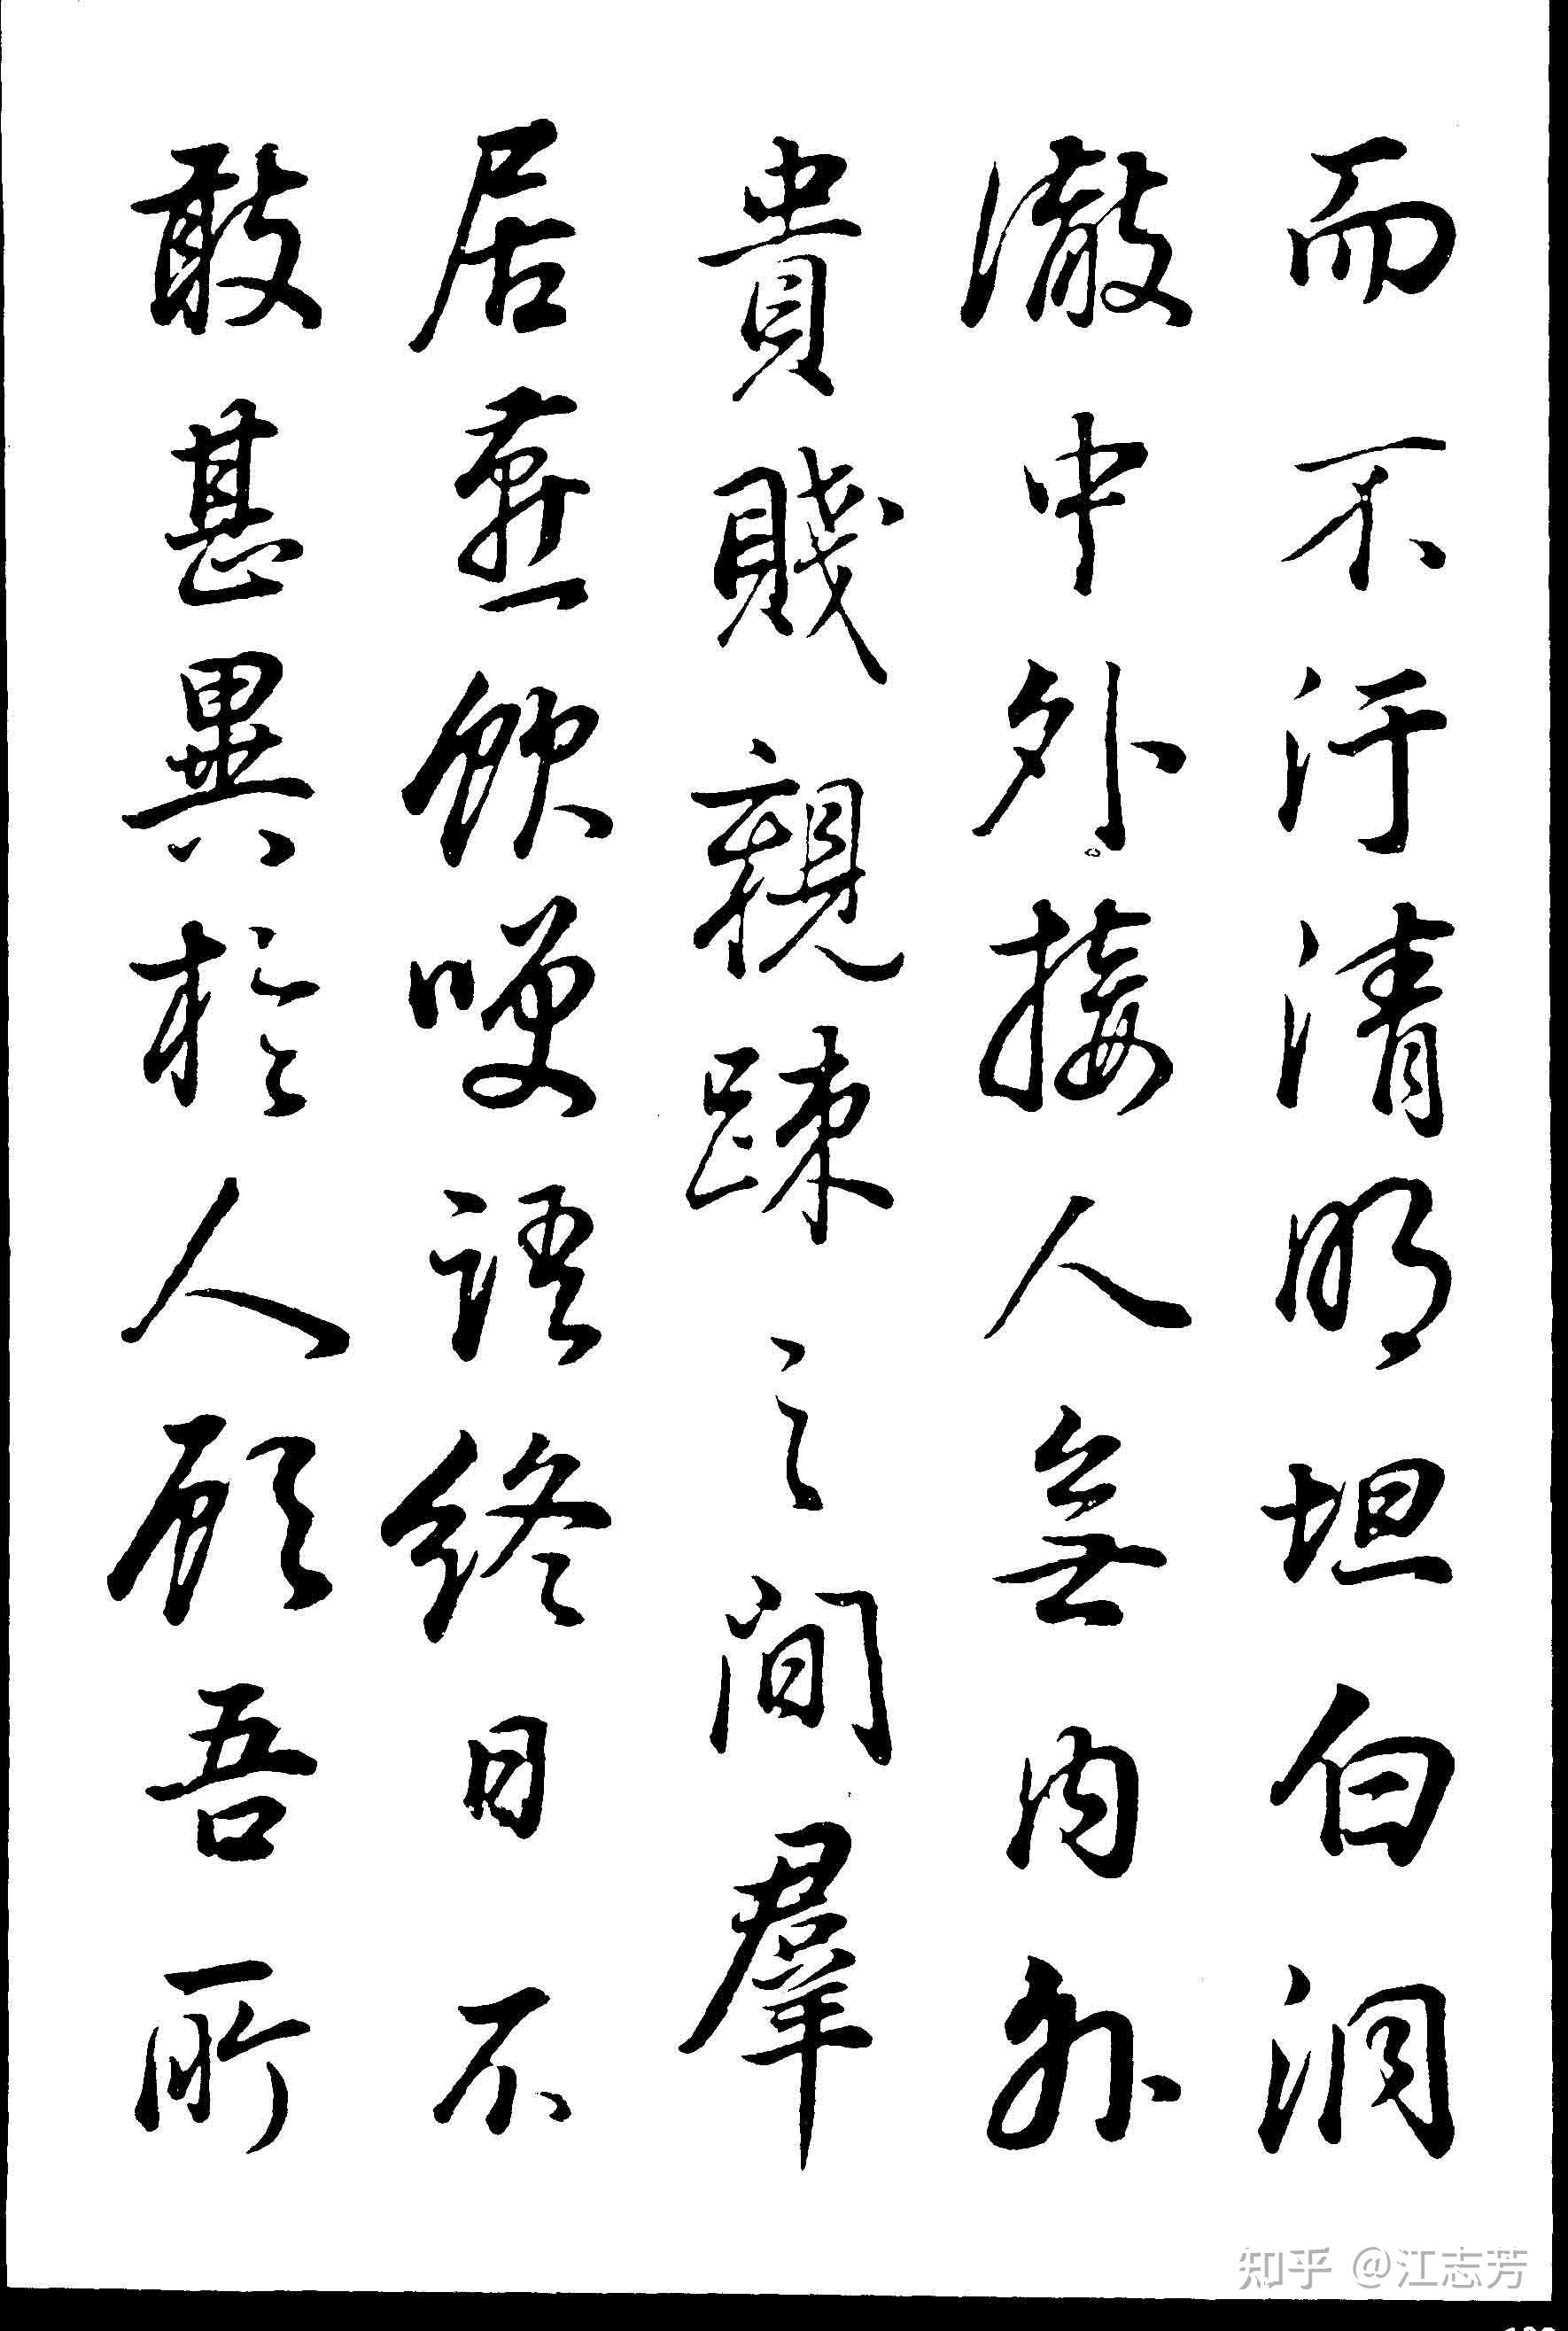 而不汙清明坦白洞
澈中外接人無内外
貴賤親踈之間羣
居燕飲哽語終日不
敢甚異於人顧吾所
知乎 @江志芳